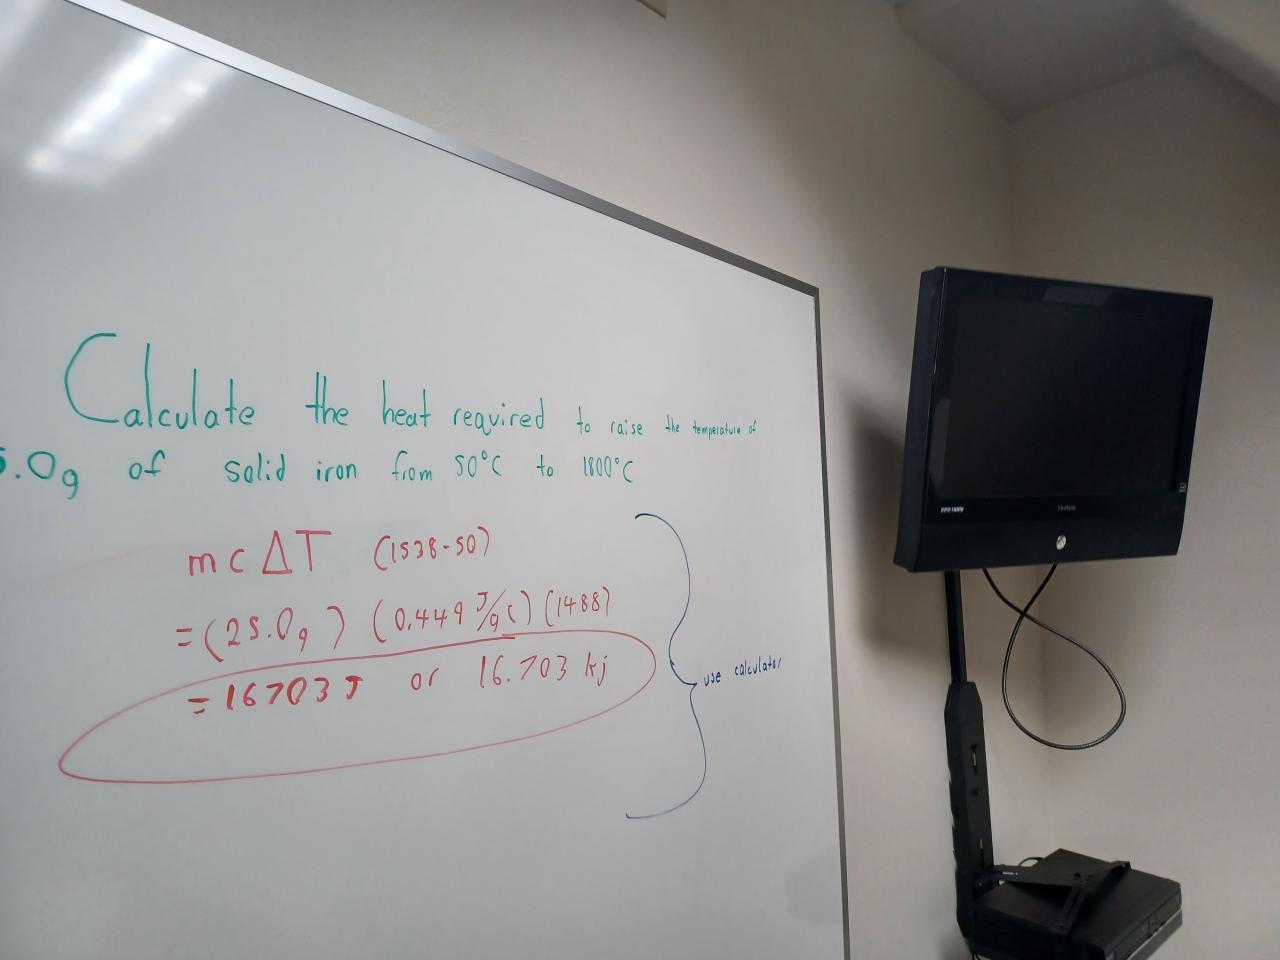 Calculate the heat required to raise the temperature of
5.0g of solid iron from 50°C to 1800°C
mcΔT (1538-50)
=(25.0g) (0.449 J/g C) (1488)
=16703 J or 16.703 kj
use calculator
ViewSonic